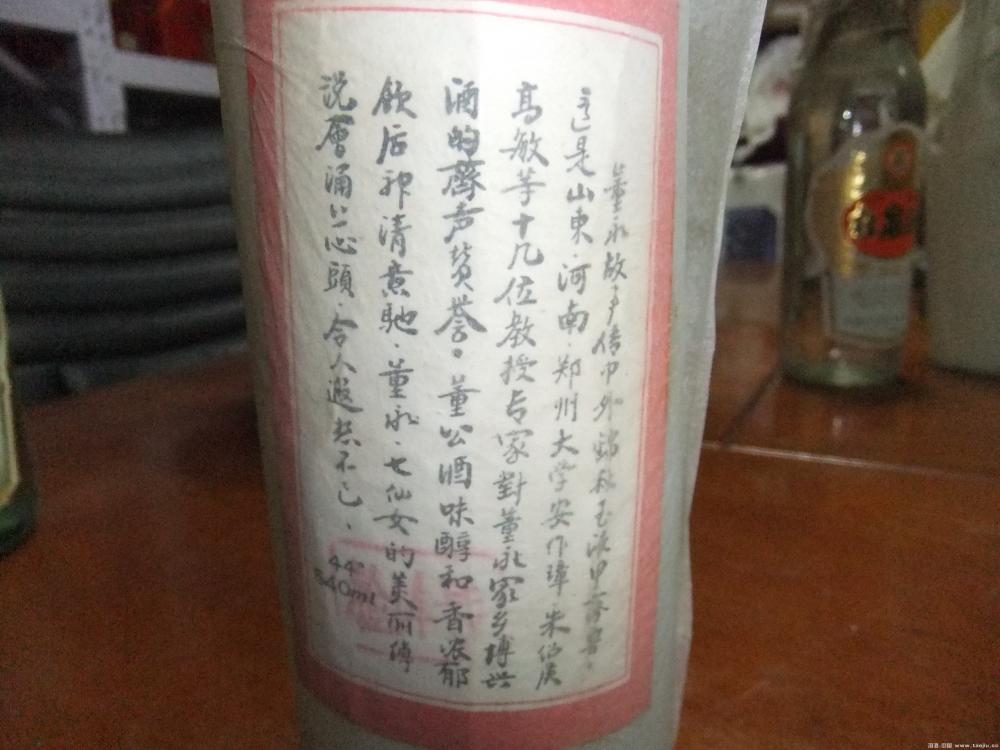 董永故乡传中外锦秋玉液甲齐鲁。
这是山东、河南、郑州大学安作璋、朱伯庚
高敏等十几位教授专家對董永家乡博兴
酒的齊声赞誉。董公酒味醇和香浓郁
飲后神清意馳、董永、七仙女的美丽傳
说層涌上心頭、令人遐想不已、
44°
540ml
www.taojiu.cn